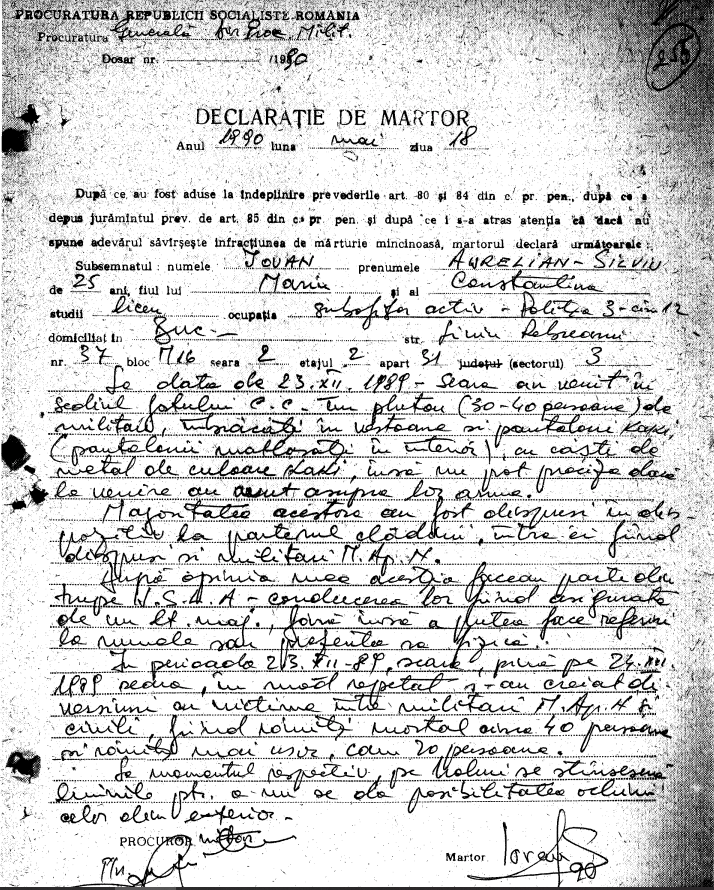 PROCURATURA REPUBLICII SOCIALISTE ROMÂNIA
Procuratura Generală Milit.
Dosar nr. /1990
255
DECLARAȚIE DE MARTOR
Anul 1990 luna mai ziua 18
După ce au fost aduse la îndeplinire prevederile art. 80 și 84 din c. pr. pen., după ce a
depus jurămîntul prev. de art. 85 din c. pr. pen. și după ce i s-a atras atenția că dacă nu
spune adevărul săvîrșește infracțiunea de mărturie mincinoasă, martorul declară următoarele :
Subsemnatul : numele IOVAN prenumele AURELIAN-SILVIU
de 25 ani, fiul lui Marin și al Constantina
studii liceu ocupația subofițer activ - Poliția 3-
domiciliat în Buc. str. Liviu Rebreanu
nr. 37 bloc M16 scara 2 etajul 2 apart 31 județul (sectorul) 3
La data de 23.XII.1989 - seara au venit în
sediul fostului C.C. un pluton (30-40 persoane) de
militari, îmbrăcați în vestoane si pantaloni kaki,
(pantalonii matlasați în interior), cu căști de
metal de culoare kaki, însă nu pot preciza dacă
la venire au avut asupra lor arme.
Majoritatea acestora au fost dispusi în dis-
pozitiv la parterul clădirii, între ei fiind
dispusi si militari M.Ap.N.
După opinia mea acestia faceau parte din
trupe U.S.L.A - conducerea lor fiind asigurată
de un lt. maj., fără însă a putea face referiri
la numele sau prezența sa fizică.
În perioada 23.XII-89, seara, pînă pe 24.XII.
1989 seara, în mod repetat s-au creiat di-
versiuni cu victime între militari M.Ap.N si
civili, fiind răniți mortal circa 40 persoane
si răniți mai usor, cam 20 persoane.
La momentul respectiv, pe holuri se stinseseră
luminile ptr. a nu se da posibilitatea ochirii
celor din exterior.-
PROCUROR militar
Martor Iovan